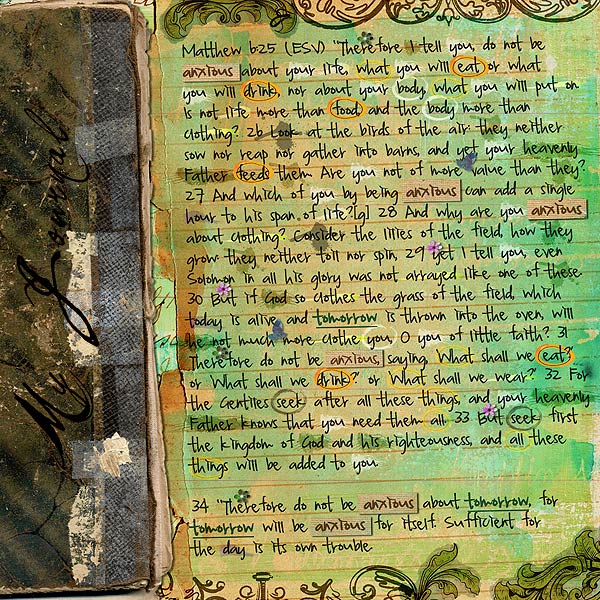 My Journal
Matthew 6:25 (ESV) "Therefore I tell you, do not be
anxious about your life, what you will eat or what
you will drink, nor about your body, what you will put on.
Is not life more than food, and the body more than
clothing? 26 Look at the birds of the air: they neither
sow nor reap nor gather into barns, and yet your heavenly
Father feeds them. Are you not of more value than they?
27 And which of you by being anxious can add a single
hour to his span of life?[g] 28 And why are you anxious
about clothing? Consider the lilies of the field, how they
grow: they neither toil nor spin, 29 yet I tell you, even
Solomon in all his glory was not arrayed like one of these.
30 But if God so clothes the grass of the field, which
today is alive and tomorrow is thrown into the oven, will
he not much more clothe you, O you of little faith? 31
Therefore do not be anxious, saying, 'What shall we eat?'
or 'What shall we drink?' or 'What shall we wear?' 32 For
the Gentiles seek after all these things, and your heavenly
Father knows that you need them all. 33 But seek first
the kingdom of God and his righteousness, and all these
things will be added to you.
34 "Therefore do not be anxious about tomorrow, for
tomorrow will be anxious for itself. Sufficient for
the day is its own trouble.